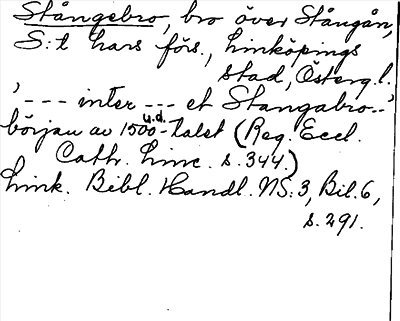 Stångebro, bro över Stångån,
S:t Lars förs., Linköpings
stad, Österg.l.
'--- inter --- et Stangabro--'
u.d.
början av 1500-talet (Reg. Eccl.
Cath. Linc. s. 344.)
Link. Bibl. Handl. NS:3, Bil. 6,
s. 291.